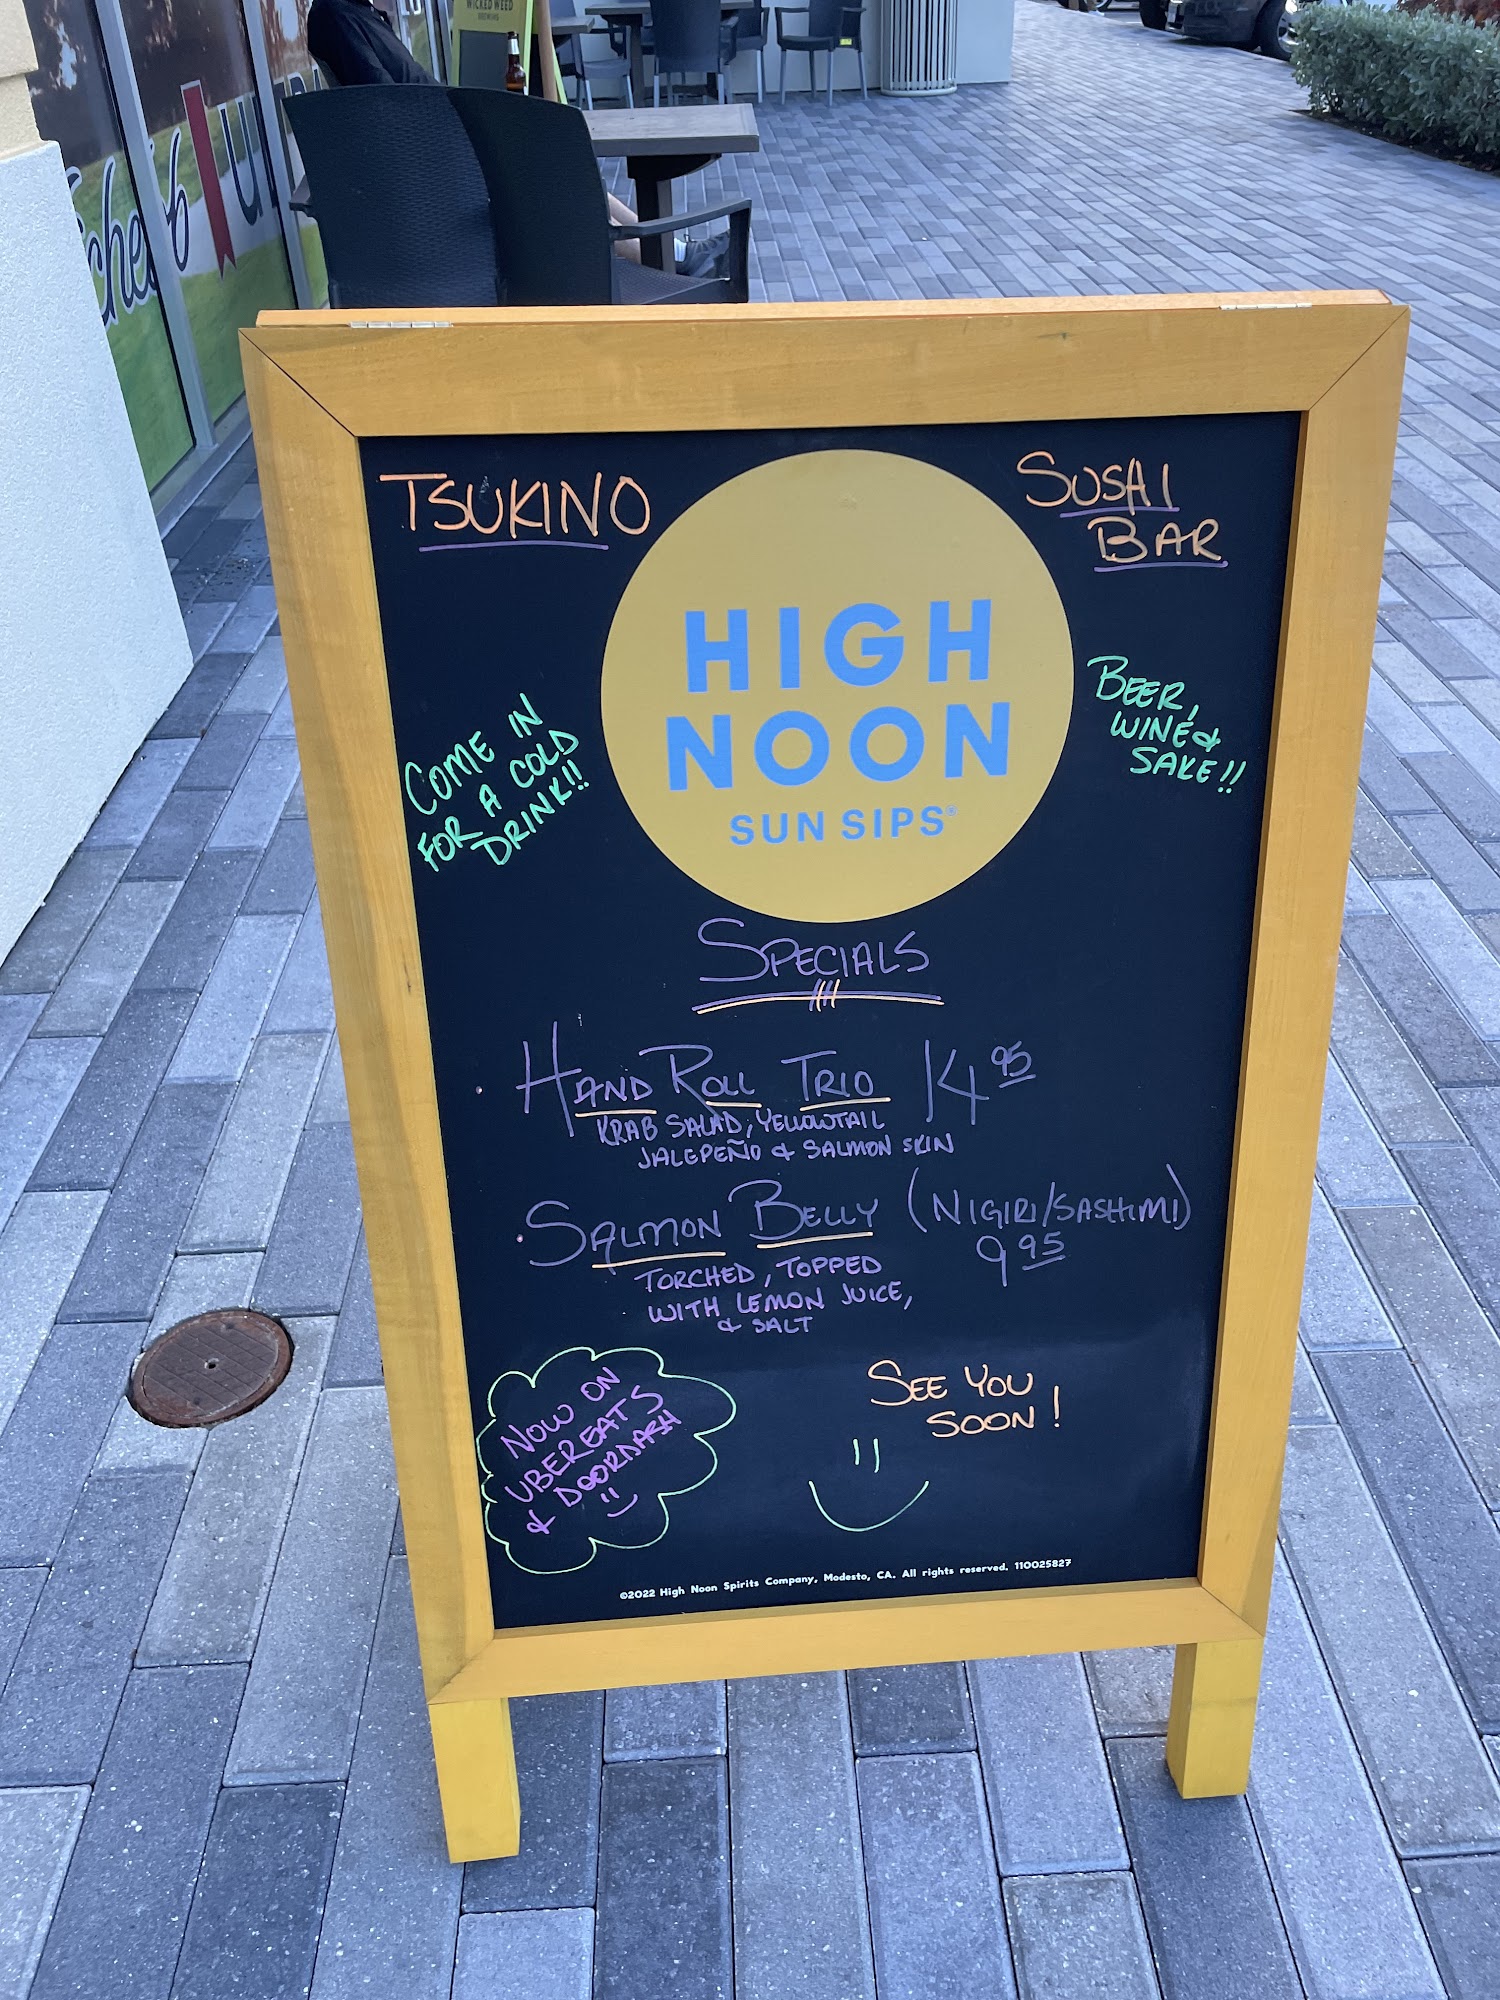 WICKED WEED
BREWING
TSUKINO
SUSHI
BAR
HIGH
NOON
SUN SIPS®
COME IN
FOR A COLD
DRINK!!
BEER,
WINE &
SAKE!!
SPECIALS
HAND ROLL TRIO 14 95
KRAB SALAD, YELLOWTAIL
JALEPEÑO & SALMON SKIN
SALMON BELLY (NIGIRI/SASHIMI)
9 95
TORCHED, TOPPED
WITH LEMON JUICE,
& SALT
NOW ON
UBEREATS
& DOORDASH
SEE YOU
SOON!
©2022 High Noon Spirits Company, Modesto, CA. All rights reserved. 110025827